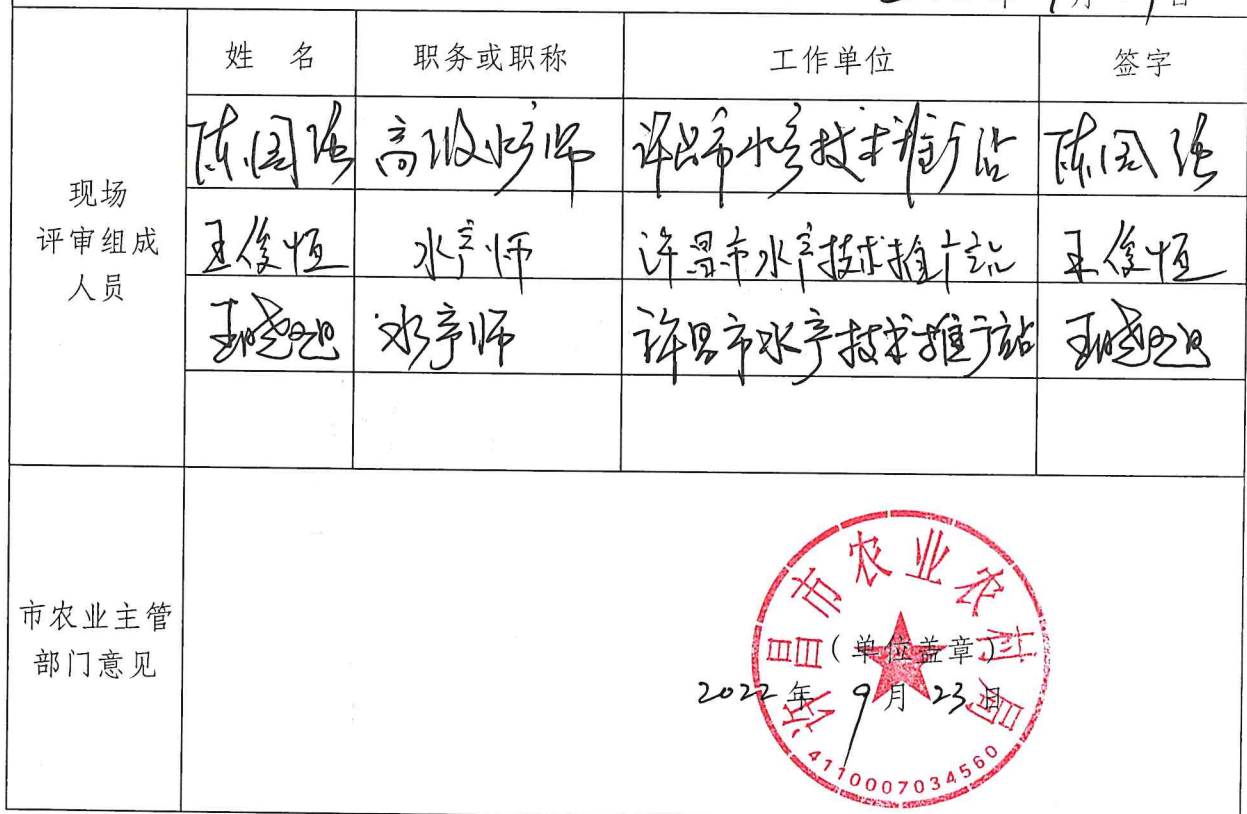 年 9 月 日
姓 名 职务或职称 工作单位 签字
现场
评审组成
人员
陈国强 高级水产师 许昌市水产技术推广站 陈国强
王俊恒 水产师 许昌市水产技术推广站 王俊恒
王晓 水产师 许昌市水产技术推广站 王晓
市农业主管
部门意见
许昌市农业农村局
(单位盖章)
2022年 9月 23日
4110007034560